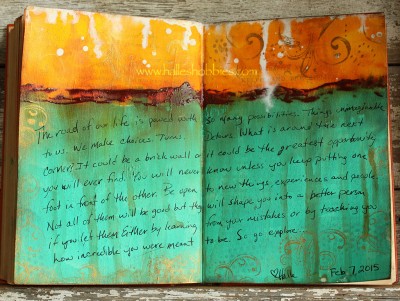 www.halleshobbies.com
The road of our life is paved with so many possibilities. Things unimaginable
to us. We make choices. Turns. What is around the next
corner? It could be a brick wall or it could be the greatest opportunity
you will ever find. You will never know unless you keep putting one
foot in front of the other. Be open to new things, experiences and people.
Not all of them will be good but they will shape you into a better person
if you let them. Either by learning from your mistakes or by teaching you
how incredible you were meant to be. So go explore...
♡Halle Feb 7, 2015